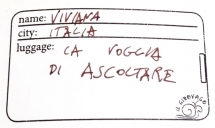 name: VIVIANA
city: ITALIA
luggage: LA VOGLIA
DI ASCOLTARE
IL GIROVAGO